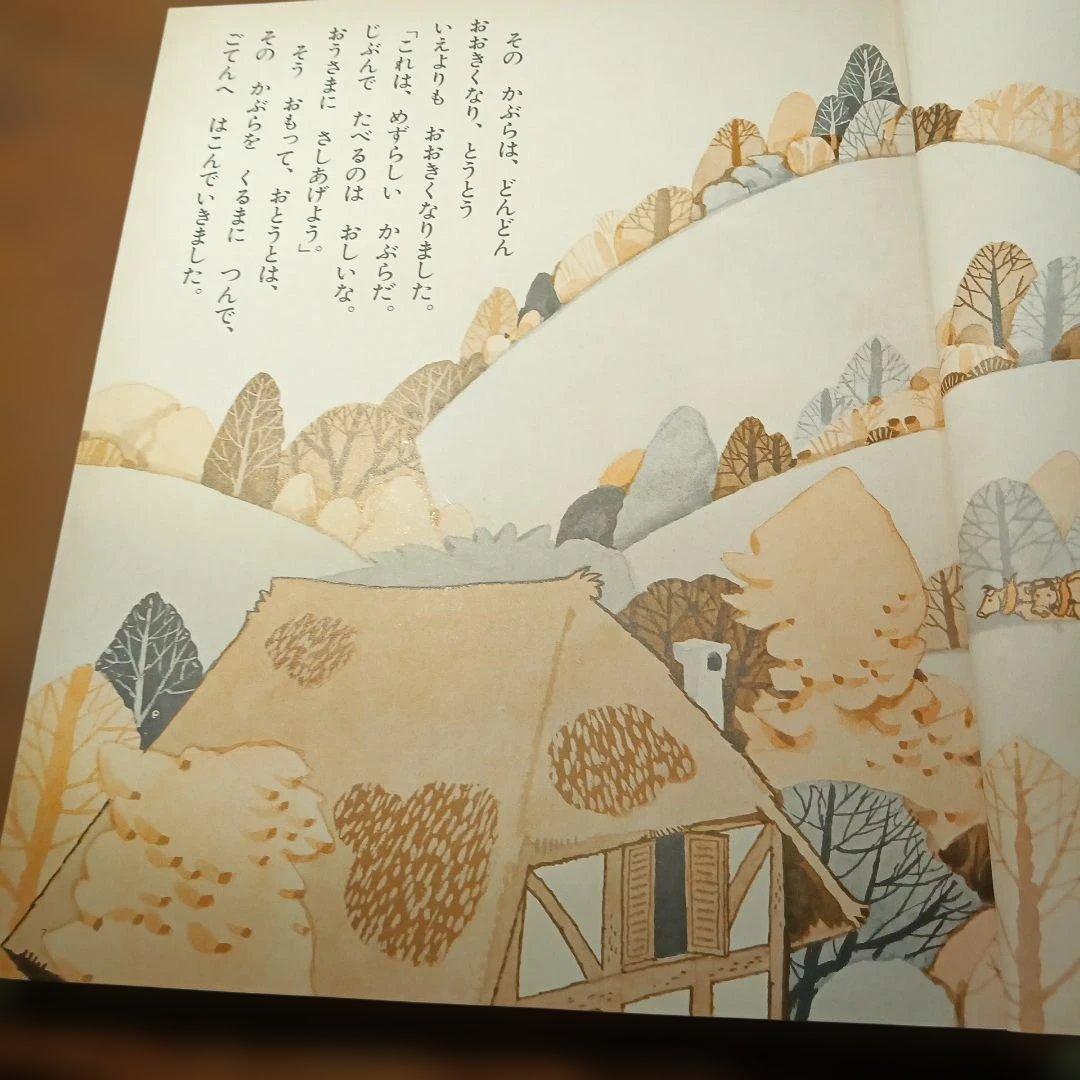 その かぶらは、どんどん
おおきくなり、とうとう
いえよりも おおきくなりました。
「これは、めずらしい かぶらだ。
じぶんで たべるのは おしいな。
おうさまに さしあげよう。」
そう おもって、おとうとは、
その かぶらを くるまに つんで、
ごてんへ はこんでいきました。